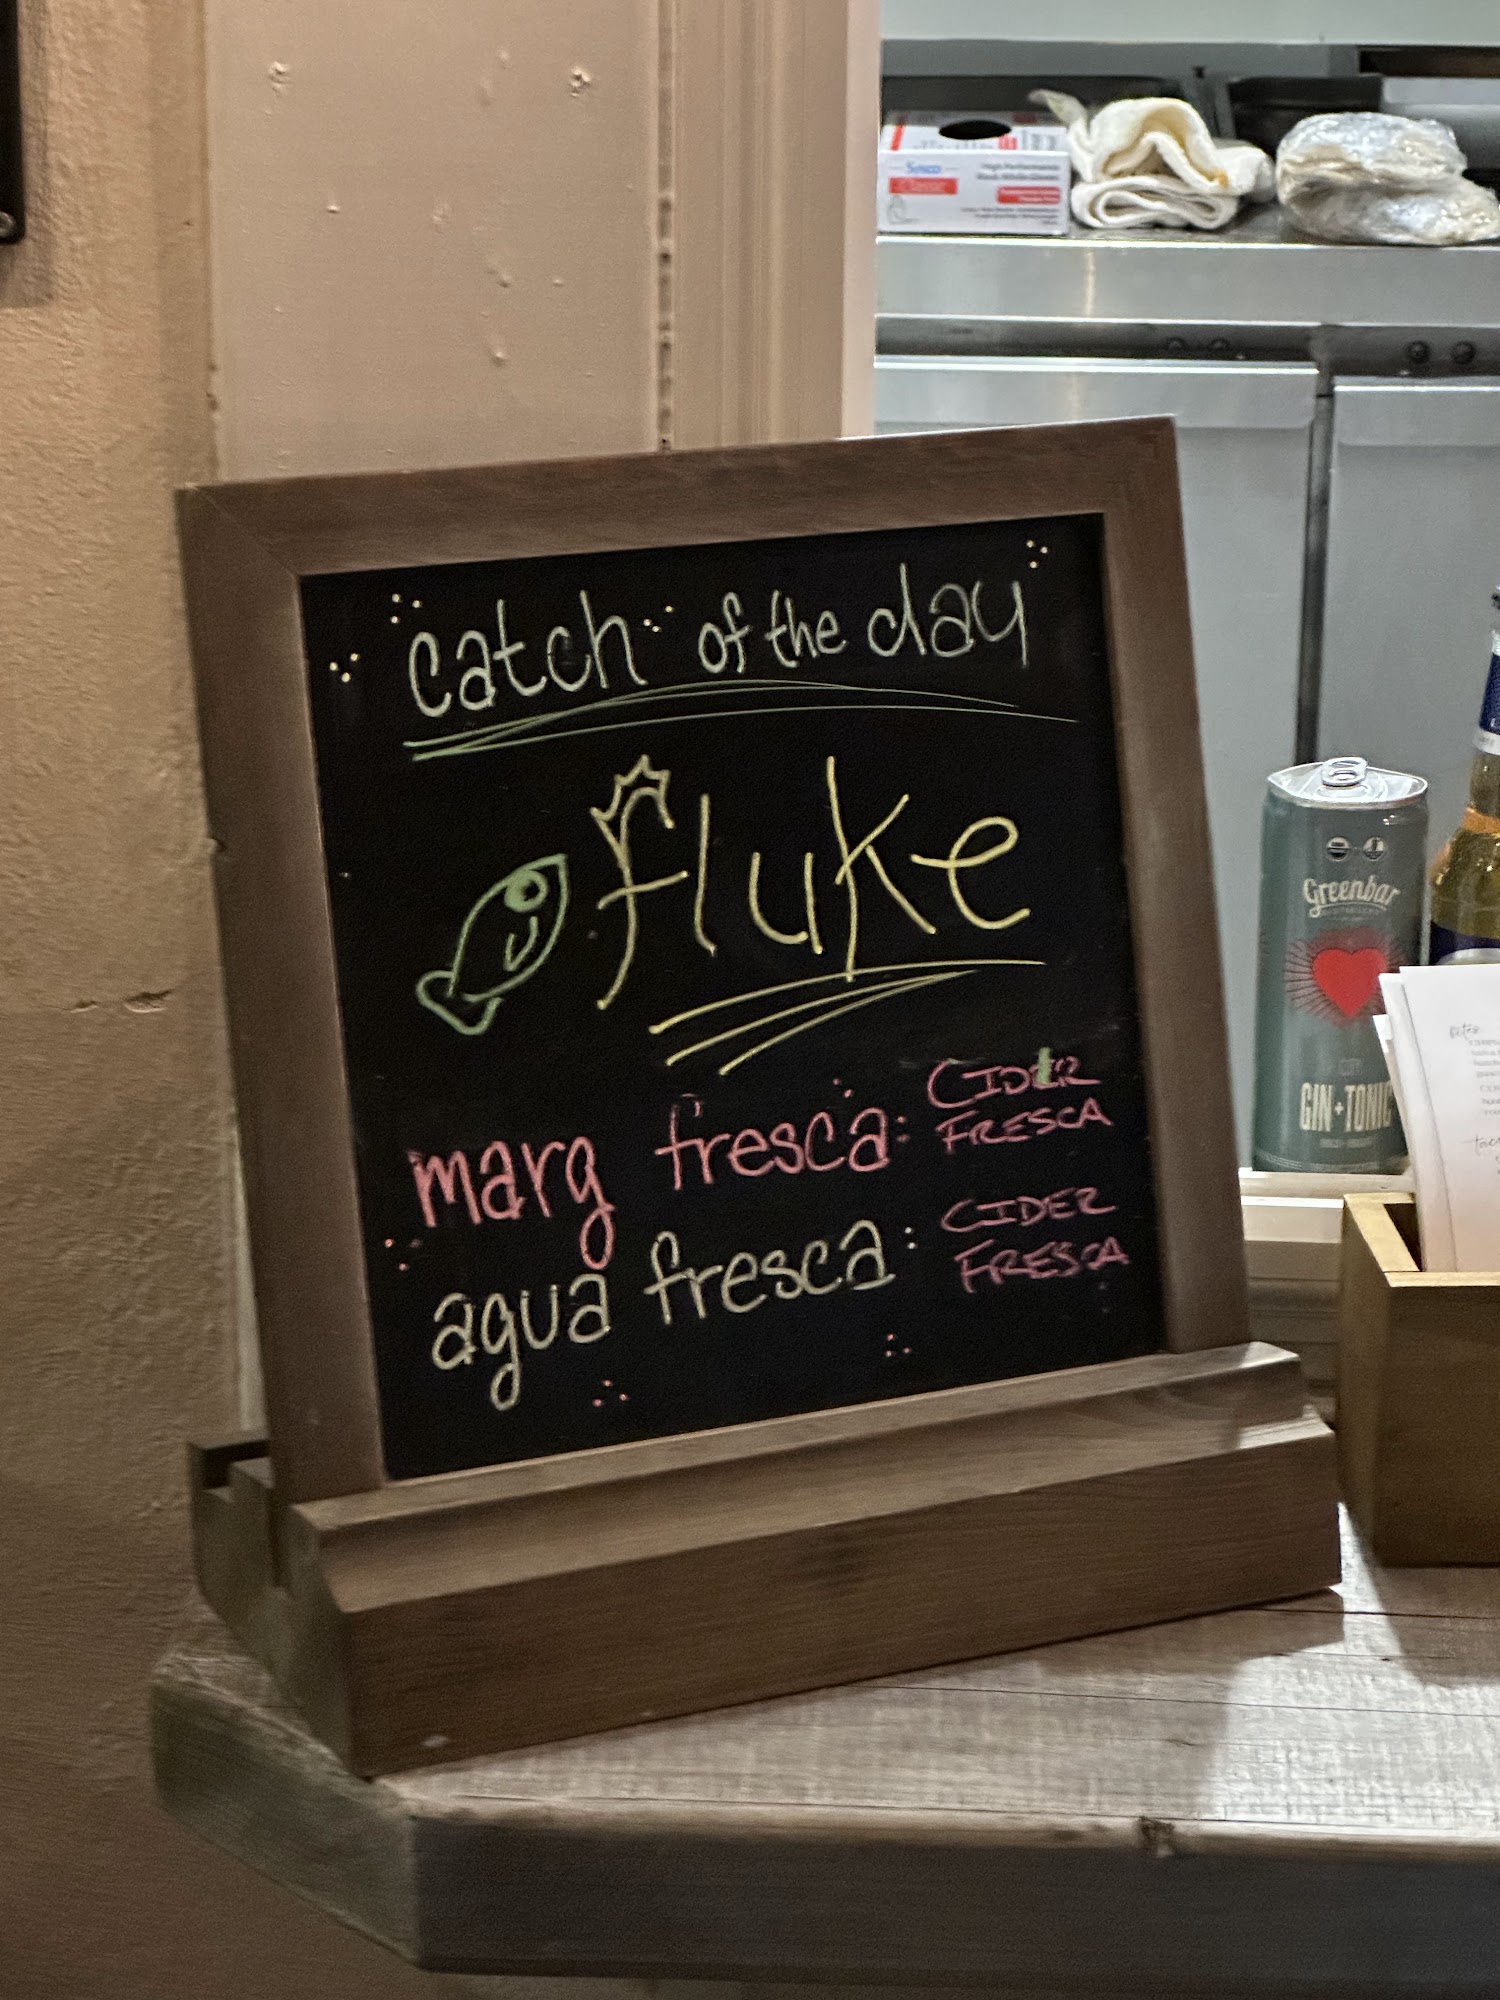 catch of the day
fluke
marg fresca: CIDER
FRESCA
agua fresca: CIDER
FRESCA
Sysco
Classic
Greenbar
GIN + TONIC